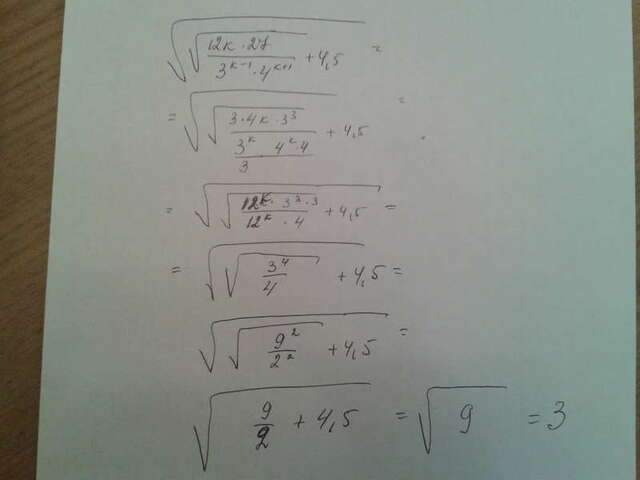 √(√((12к · 27)/(3^(к-1) · 4^(к+1))) + 4,5) =
= √(√((3 · 4к · 3^3)/((3^к/3) · 4^к · 4)) + 4,5) =
= √(√((12^к · 3^3 · 3)/(12^к · 4)) + 4,5) =
= √(√(3^4/4) + 4,5) =
√(√(9^2/2^2) + 4,5) =
√(9/2 + 4,5) = √9 = 3